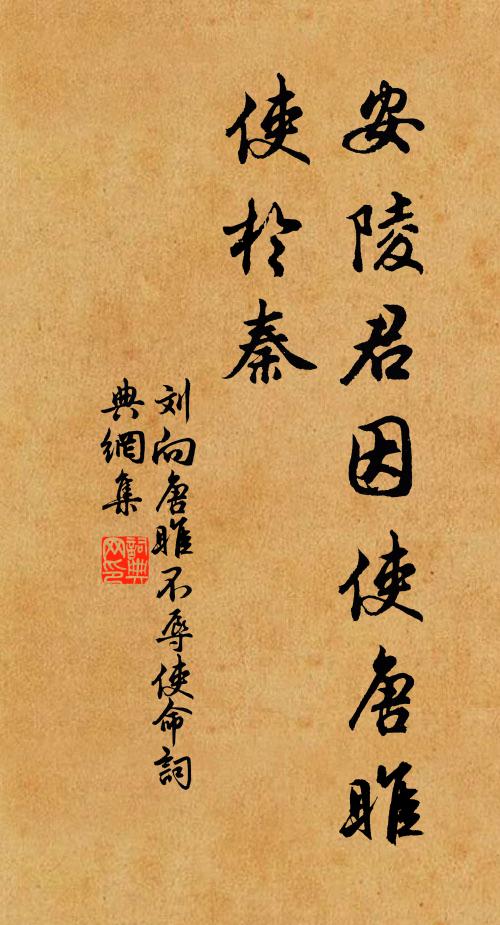 安陵君因使唐雎
使於秦
刘向唐雎不辱使命詞
典網集
詞典
网印